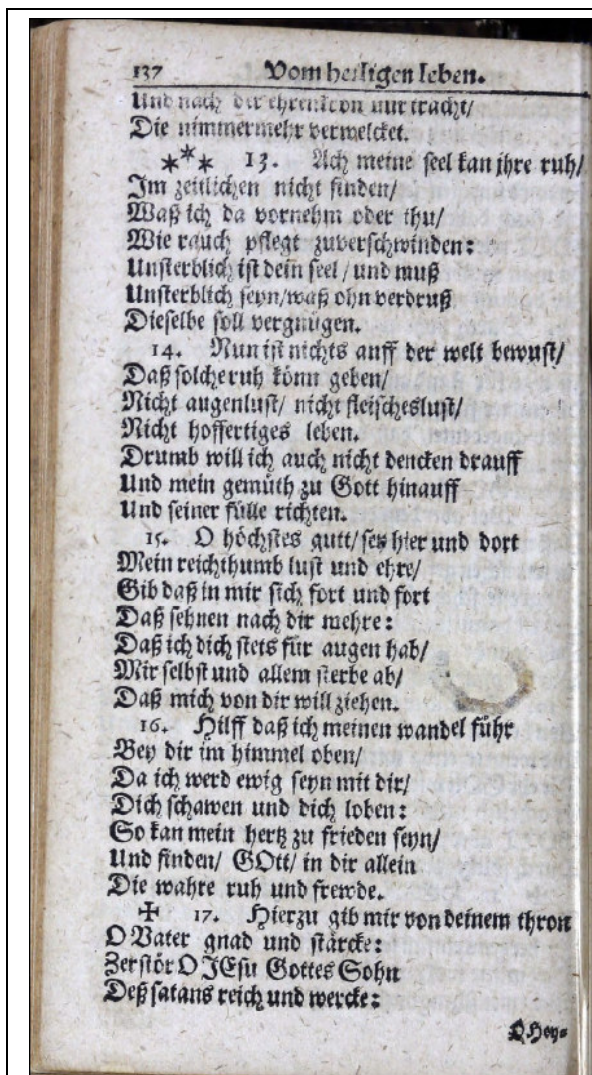 137 Vom heiligen leben.
Und nach der ehrenkron nur tracht/
Die nimmermehr verwelcket.
*** 13. Ach meine seel kan jhre ruh/
Im zeitlichen nicht finden/
Waß ich da vornehm oder thu/
Wie rauch pflegt zuverschwinden:
Unsterblich ist dein seel / und muß
Unsterblich seyn/waß ohn verdruß
Dieselbe soll vergnügen.
14. Nun ist nichts auff der welt bewust/
Daß solche ruh könn geben/
Nicht augenlust/ nicht fleischeslust/
Nicht hoffertiges leben.
Drumb will ich auch nicht dencken drauff
Und mein gemüth zu Gott hinauff
Und seiner fülle richten.
15. O höchstes gutt/ sey hier und dort
Mein reichthumb lust und ehre/
Gib daß in mir sich fort und fort
Daß sehnen nach dir mehre:
Daß ich dich stets für augen hab/
Mir selbst und allem sterbe ab/
Daß mich von dir will ziehen.
16. Hilff daß ich meinen wandel führ
Bey dir im himmel oben/
Da ich werd ewig seyn mit dir/
Dich schawen und dich loben:
So kan mein hertz zu frieden seyn/
Und finden/ GOtt/ in dir allein
Die wahre ruh und frewde.
✠ 17. Hierzu gib mir von deinem thron
O Vater gnad und stärcke:
Zerstör O JEsu Gottes Sohn
Deß satans reich und wercke:
O Hey=